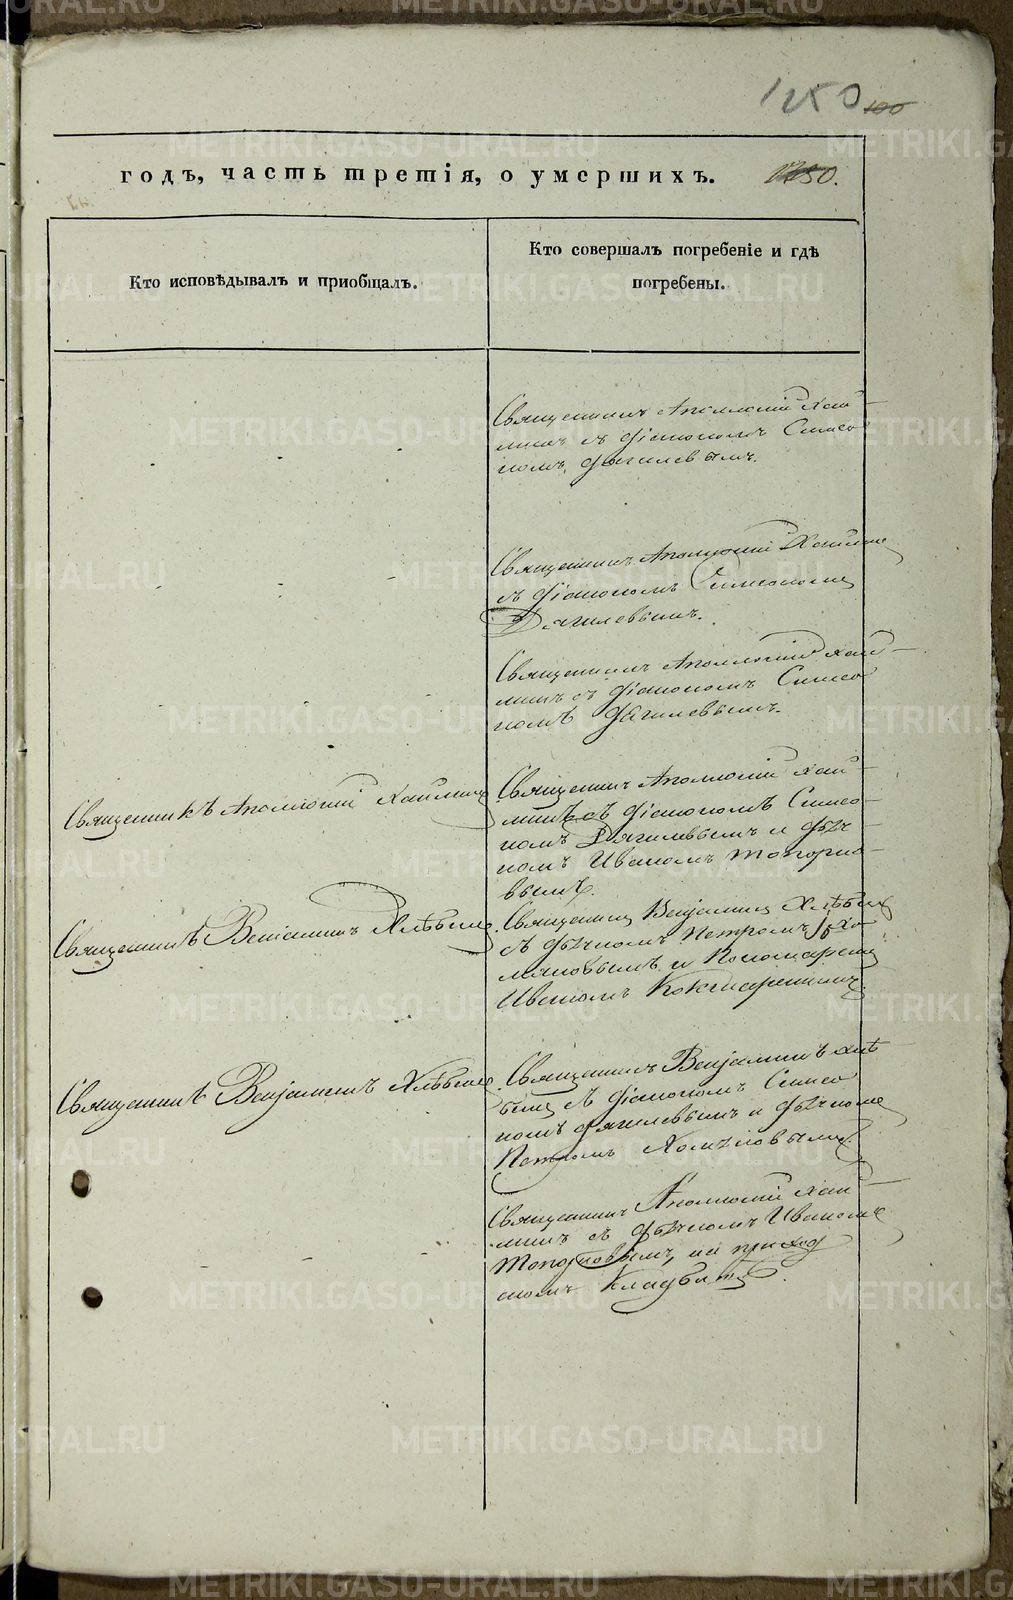 1250
100
годъ, часть третія, о умершихъ.
1250.
Кто исповѣдывалъ и приобщалъ.
Кто совершалъ погребеніе и гдѣ
погребены.
Священникъ Аполлоній Хай-
минъ съ Діакономъ Симео
номъ Дягилевымъ.
Священникъ Аполлоній Хайминъ
съ Діакономъ Симеономъ
Дягилевымъ.
Священникъ Аполлоній Хай-
минъ съ Діакономъ Симео
номъ Дягилевымъ.
Священникъ Аполлоній Хайминъ
Священникъ Аполлоній Хай-
минъ съ Діакономъ Симео-
номъ Дягилевымъ и Дьяч-
комъ Иваномъ Топорко-
вымъ.
Священникъ Веніаминъ Хлѣбинъ
Священникъ Веніаминъ Хлѣбинъ
съ Дьячкомъ Петромъ Хо
мяковымъ и Пономаремъ
Иваномъ
Священникъ Веніаминъ Хлѣбинъ
Священникъ Веніаминъ Хлѣ
бинъ съ Діакономъ Симео
номъ Дягилевымъ и Дьячкомъ
Петромъ Хомяковымъ
Священникъ Аполлоній Хай-
минъ съ Дьячкомъ Иваномъ
на приход
скомъ Кладбищѣ.
METRIKI.GASO-URAL.RU